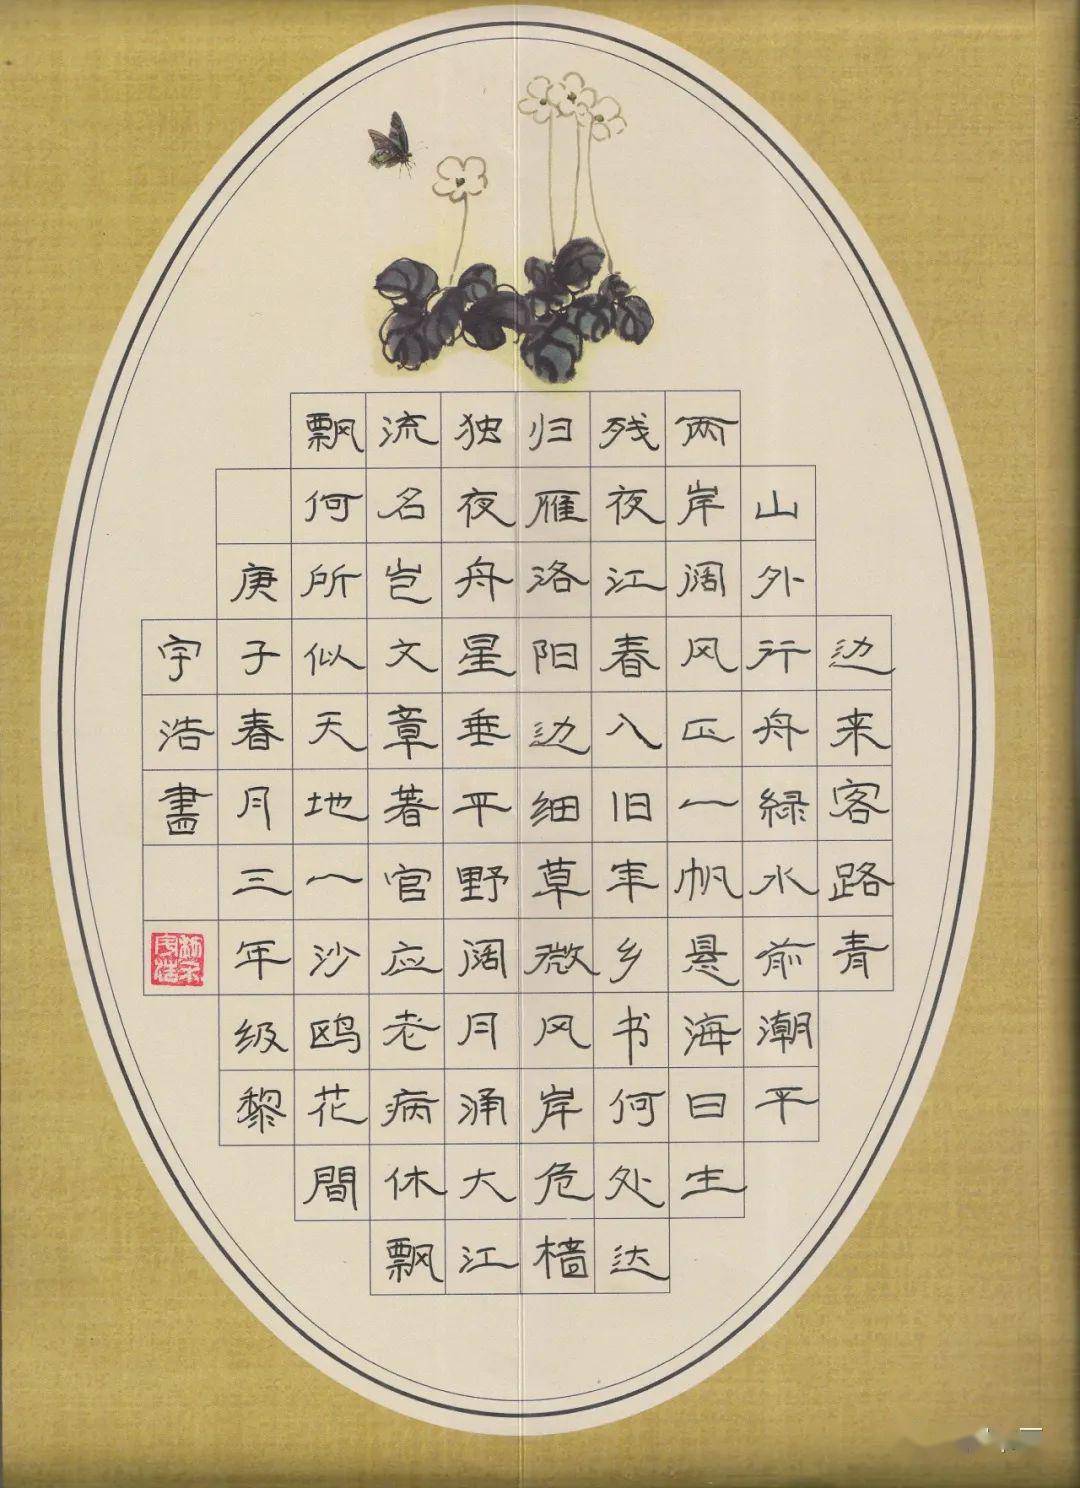 边来客路青
山外行舟緑水前潮平
两岸阔风正一帆悬海日生
残夜江春入旧年乡书何处达
归雁洛阳边细草微风岸危樯
独夜舟星垂平野阔月涌大江
流名岂文章著官应老病休飘
飘何所似天地一沙鸥花間
庚子春月三年级黎
宇浩書